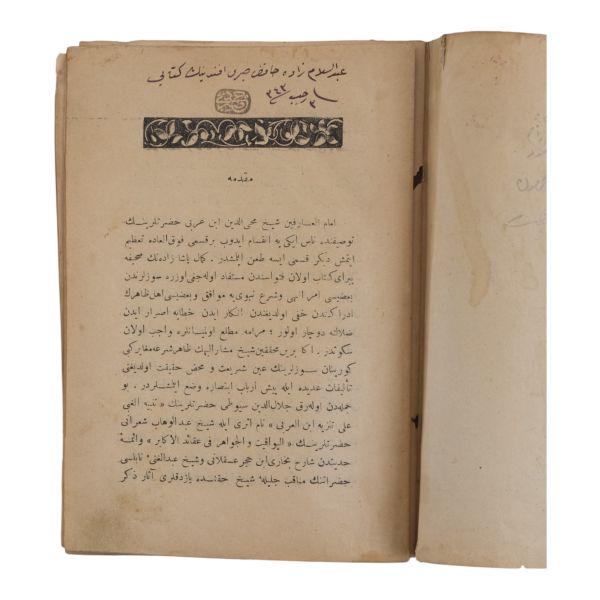 عبدالسلام زاده حافظ صبری افندینك کتابی
مقدمه
امام العارفین شیخ محی‌الدین ابن عربی حضرتلرینك
توصیفنده ناس ایکی یه انقسام ایدوب برقسمی فوق العاده تعظیم
ایتمش دیکر قسمی ایسه طعن ایلشدر . کمال پاشا زاده‌نك صحیفه
پیرای کتاب اولان فتواسندن مستفاد اوله‌جغی اوزره سوزلرندن
بعضیسی امر الهی وشرع نبوی‌یه موافق وبعضیسی اهل ظاهرك
ادراکندن خفی اولدیغندن انکار ایدن خطایه اصرار ایدن
ضلالته دوچار اولور ؛ مرامه مطلع اولمیانلره واجب اولان
سکوتدر . اکا برین محققین شیخ مشارالیهك ظاهر شرعه مغایر کی
کورینان سوزلرینك عین شریعت و محض حقیقت اولدیغنی
تألیفات عدیده ایله پیش ارباب انتصاره وضع ایلشلردر . بو
جمله‌دن اوله‌رق جلال‌الدین سیوطی حضرتلرینك « تنبیه الغبی
علی تنزیه ابن العربی » نام اثری ایله شیخ عبدالوهاب شعرانی
حضرتلرینك « الیواقیت والجواهر فی عقائد الاکابر » وائمهٔ
حدیثدن شارح بخاری ابن حجر عسقلانی وشیخ عبدالغنی نابلسی
حضراتنك مناقب جلیلهٔ شیخ حقنده یازدقلری آثار ذکر